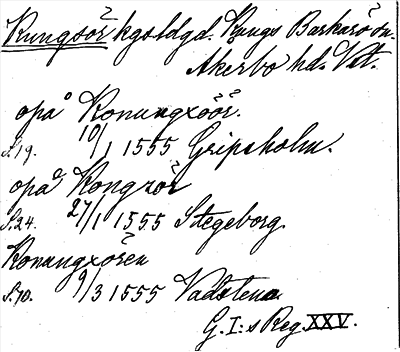 Kungsör kgsldgd. Kungs Barkarö sn.
Åkerbo hd. Vstl.
opå Konungxöör.
S.19. 10/1 1555 Gripsholm.
opå Kongzör
S.24. 27/1 1555 Stegeborg.
Konungxören
S.70. 9/3 1555 Vadstena
G.I:s Reg. XXV.